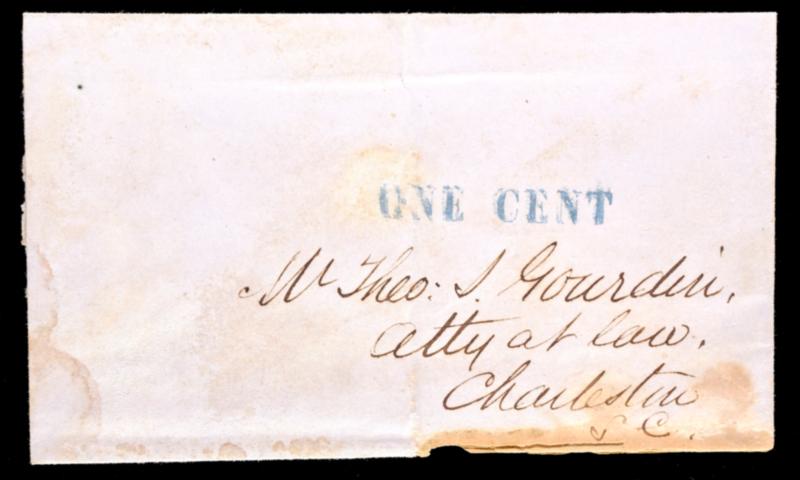 ONE CENT
Mr Theo: S. Gourdin,
Atty at law.
Charleston
S C.